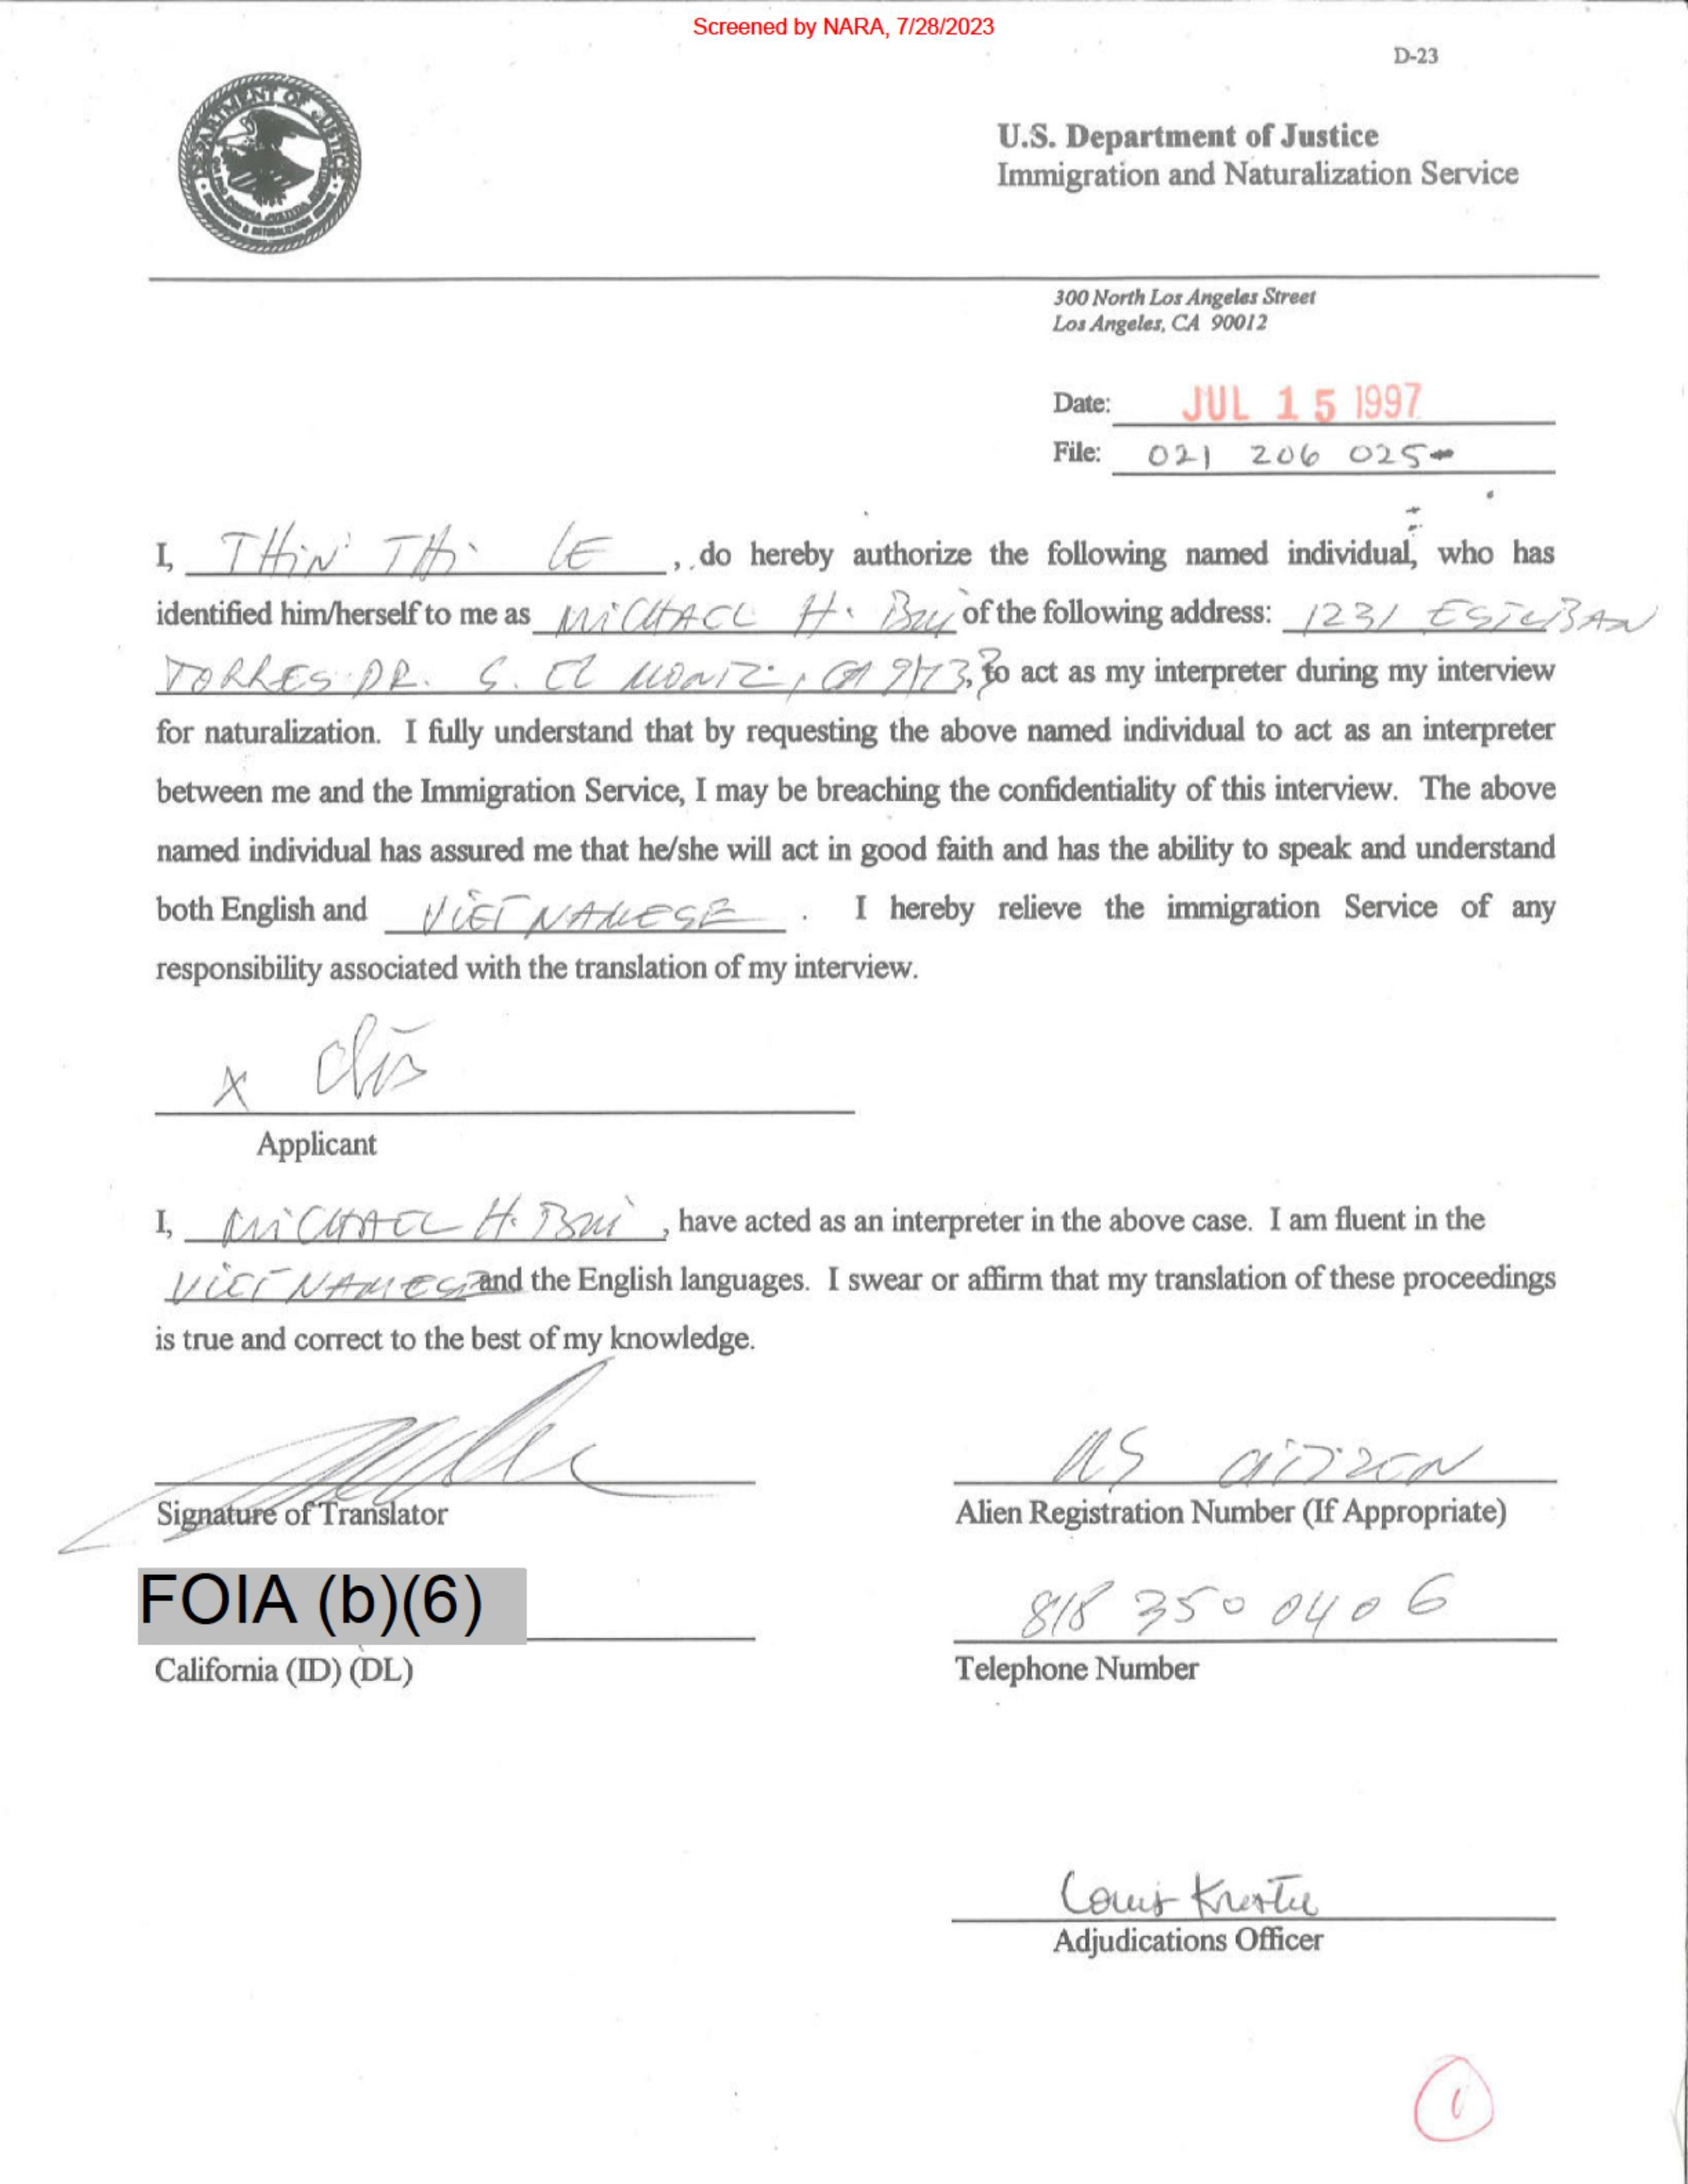 Screened by NARA, 7/28/2023
D-23
DEPARTMENT OF JUSTICE
U.S. Department of Justice
Immigration and Naturalization Service
300 North Los Angeles Street
Los Angeles, CA 90012
Date: JUL 15 1997
File: 021 206 025
I, THIN THI LE, do hereby authorize the following named individual, who has
identified him/herself to me as MICHAEL H. Bui of the following address: 1231 ESTEBAN
TORRES DR. S. El MONTE, CA 91733, to act as my interpreter during my interview
for naturalization. I fully understand that by requesting the above named individual to act as an interpreter
between me and the Immigration Service, I may be breaching the confidentiality of this interview. The above
named individual has assured me that he/she will act in good faith and has the ability to speak and understand
both English and VIETNAMESE. I hereby relieve the immigration Service of any
responsibility associated with the translation of my interview.
X
Applicant
I, MICHAEL H. Bui, have acted as an interpreter in the above case. I am fluent in the
VIETNAMESE and the English languages. I swear or affirm that my translation of these proceedings
is true and correct to the best of my knowledge.
US CITIZEN
Signature of Translator Alien Registration Number (If Appropriate)
FOIA (b)(6) 818 350 0406
California (ID) (DL) Telephone Number
Louis
Adjudications Officer